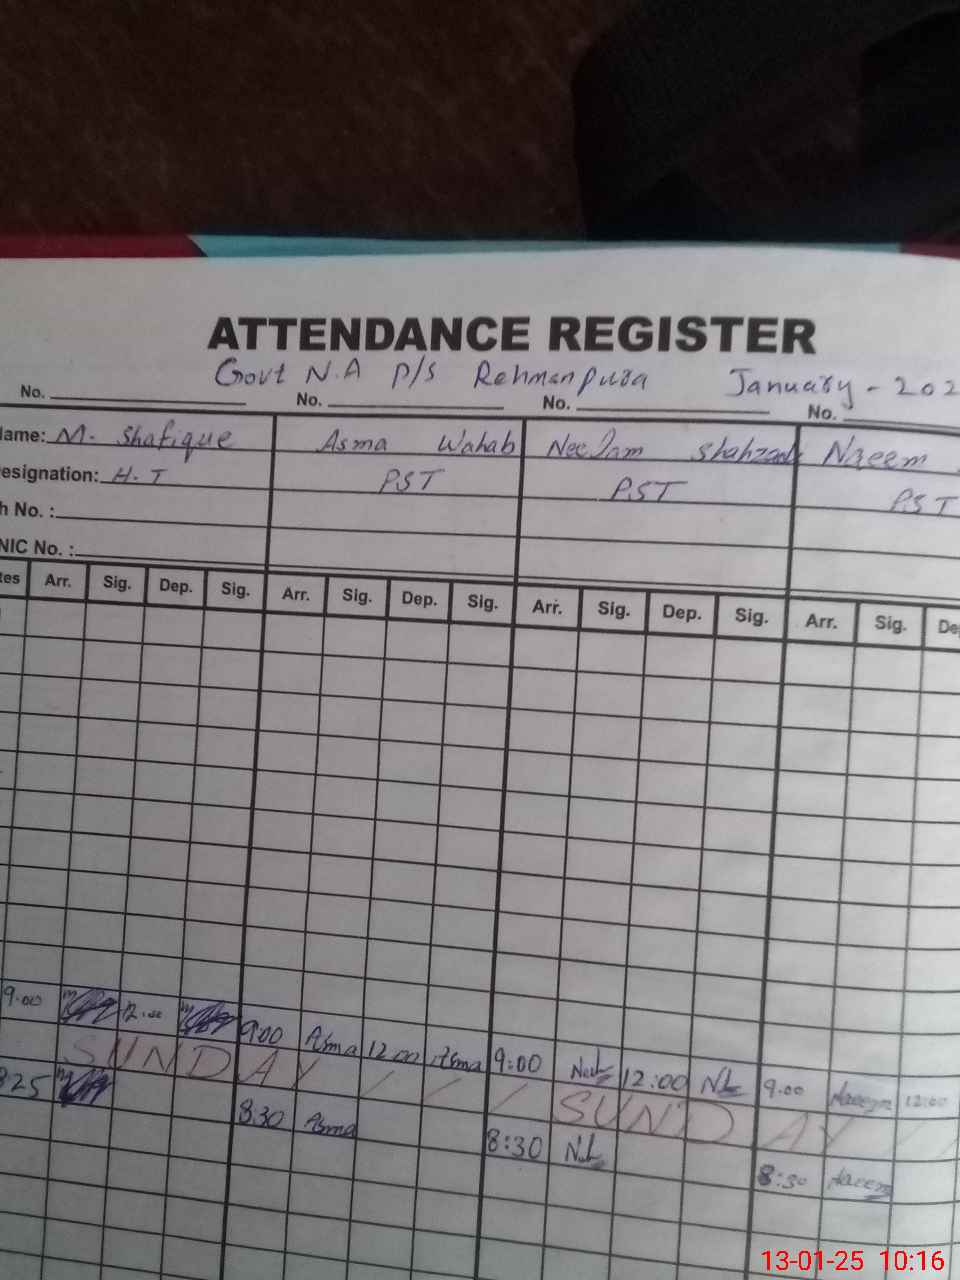 ATTENDANCE REGISTER
Govt N.A P/S Rehmanpura January - 202
No. No. No. No.
Name: M. Shafique Asma Wahab Neelam Shahzadi Naeem
esignation: H.T PST PST PST
h No. :
NIC No. :
tes Arr. Sig. Dep. Sig. Arr. Sig. Dep. Sig. Arr. Sig. Dep. Sig. Arr. Sig. De
9.00 12.00 9:00 Asma 12 00 Asma 9:00 12:00 9.00 Naeem 12:00
SUNDAY SUNDAY
825 8.30 Asma 8:30 8:30 Naeem
13-01-25 10:16